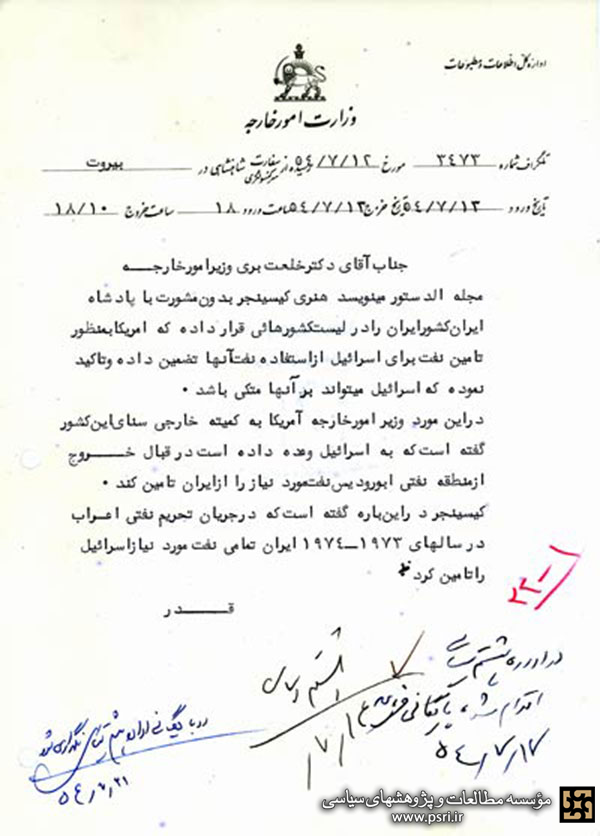 اداره کل اطلاعات و مطبوعات
وزارت امور خارجه
تلگراف شماره ۳۴۷۳ مورخ ۵۴/۷/۱۲ رسیده از سفارت شاهنشاهی در بیروت
سرکنسولگری
تاریخ ورود ۵۴/۷/۱۳ تاریخ خروج ۵۴/۷/۱۳ ساعت ورود ۱۸ ساعت خروج ۱۸/۱۰
جناب آقای دکتر خلعت بری وزیر امور خارجه
مجله الدستور مینویسد هنری کیسینجر بدون مشورت با پادشاه
ایران کشور ایران را در لیست کشورهائی قرار داده که امریکا بمنظور
تامین نفت برای اسرائیل از استفاده نفت آنها تضمین داده و تاکید
نموده که اسرائیل میتواند بر آنها متکی باشد .
در این مورد وزیر امور خارجه آمریکا به کمیته خارجی سنای این کشور
گفته است که به اسرائیل وعده داده است در قبال خروج
از منطقه نفتی ابورودیس نفت مورد نیاز را از ایران تامین کند .
کیسینجر در این باره گفته است که در جریان تحریم نفتی اعراب
در سالهای ۱۹۷۳–۱۹۷۴ ایران تمامی نفت مورد نیاز اسرائیل
را تامین کرد
قدر
۱–۲۲
در اداره هشتم سیاسی
هشتم سیاسی
اقدام شد بایگانی
۵۴/۷/۱۷
مؤسسه مطالعات و پژوهشهای سیاسی
www.psri.ir